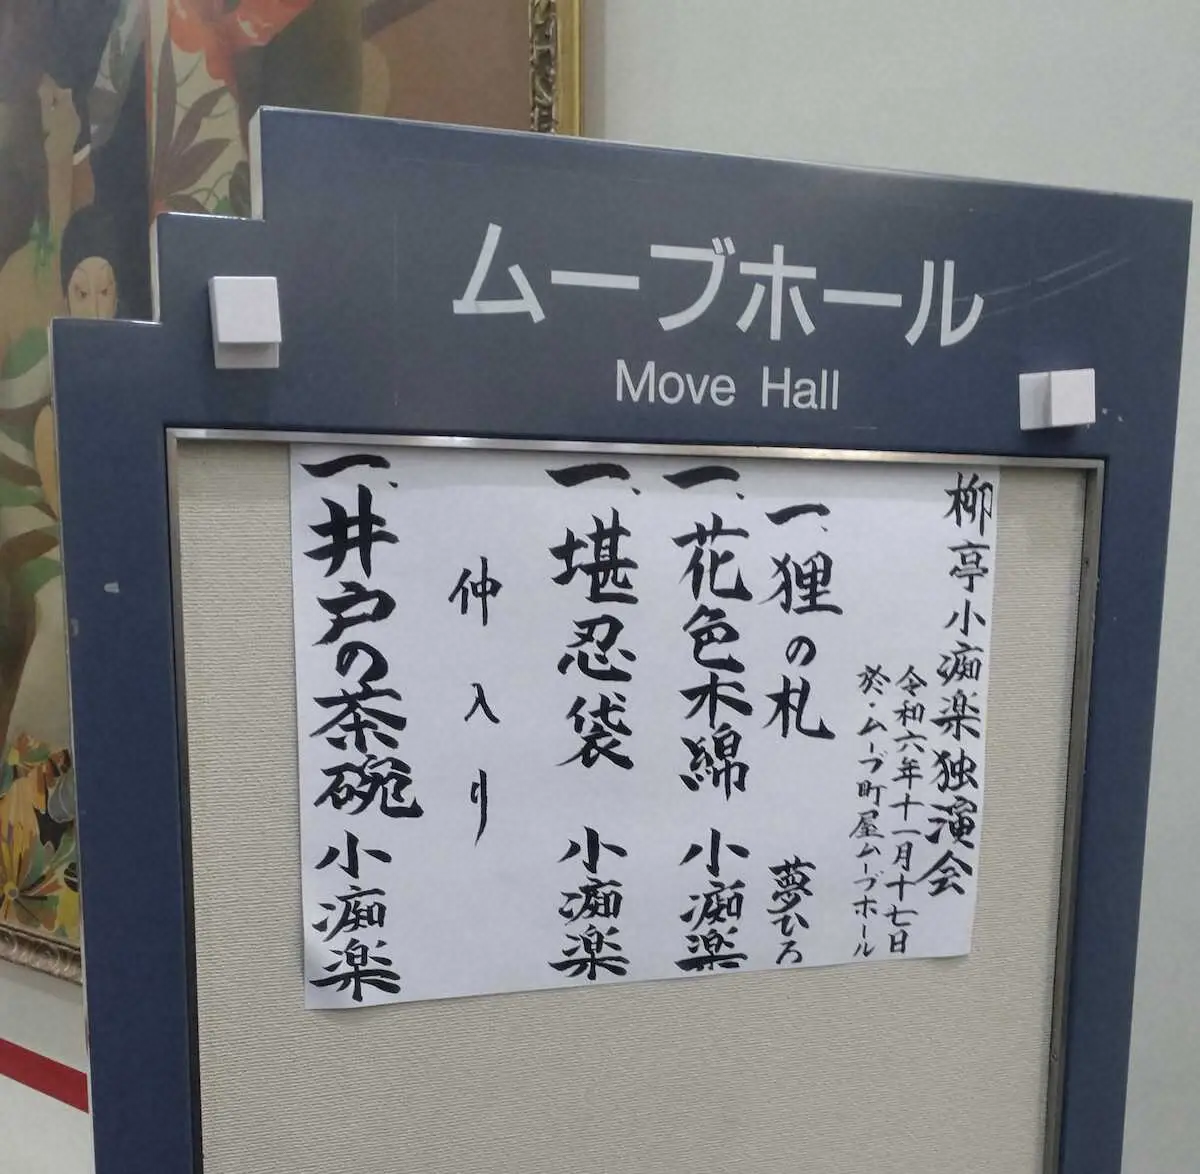 ムーブホール
Move Hall
柳亭小痴楽独演会
令和六年十一月十七日
於・ムーブ町屋ムーブホール
一、狸の札 夢ひろ
一、花色木綿 小痴楽
一、堪忍袋 小痴楽
仲入り
一、井戸の茶碗 小痴楽